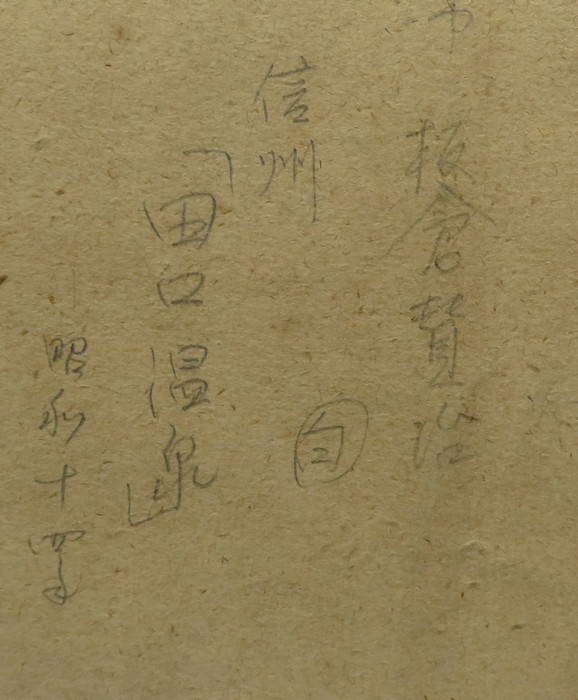 板倉賛治
信州
白
「田口温泉」
昭和十四年